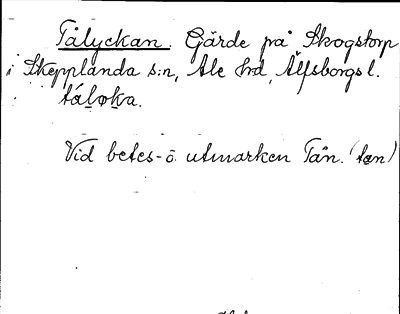 Tålyckan. Gärde på Skogstorp
i Skepplanda s:n, Ale hrd, Älfsborgs l.
tálωka.
Vid betes- o. utmarken Tån. (tøn)